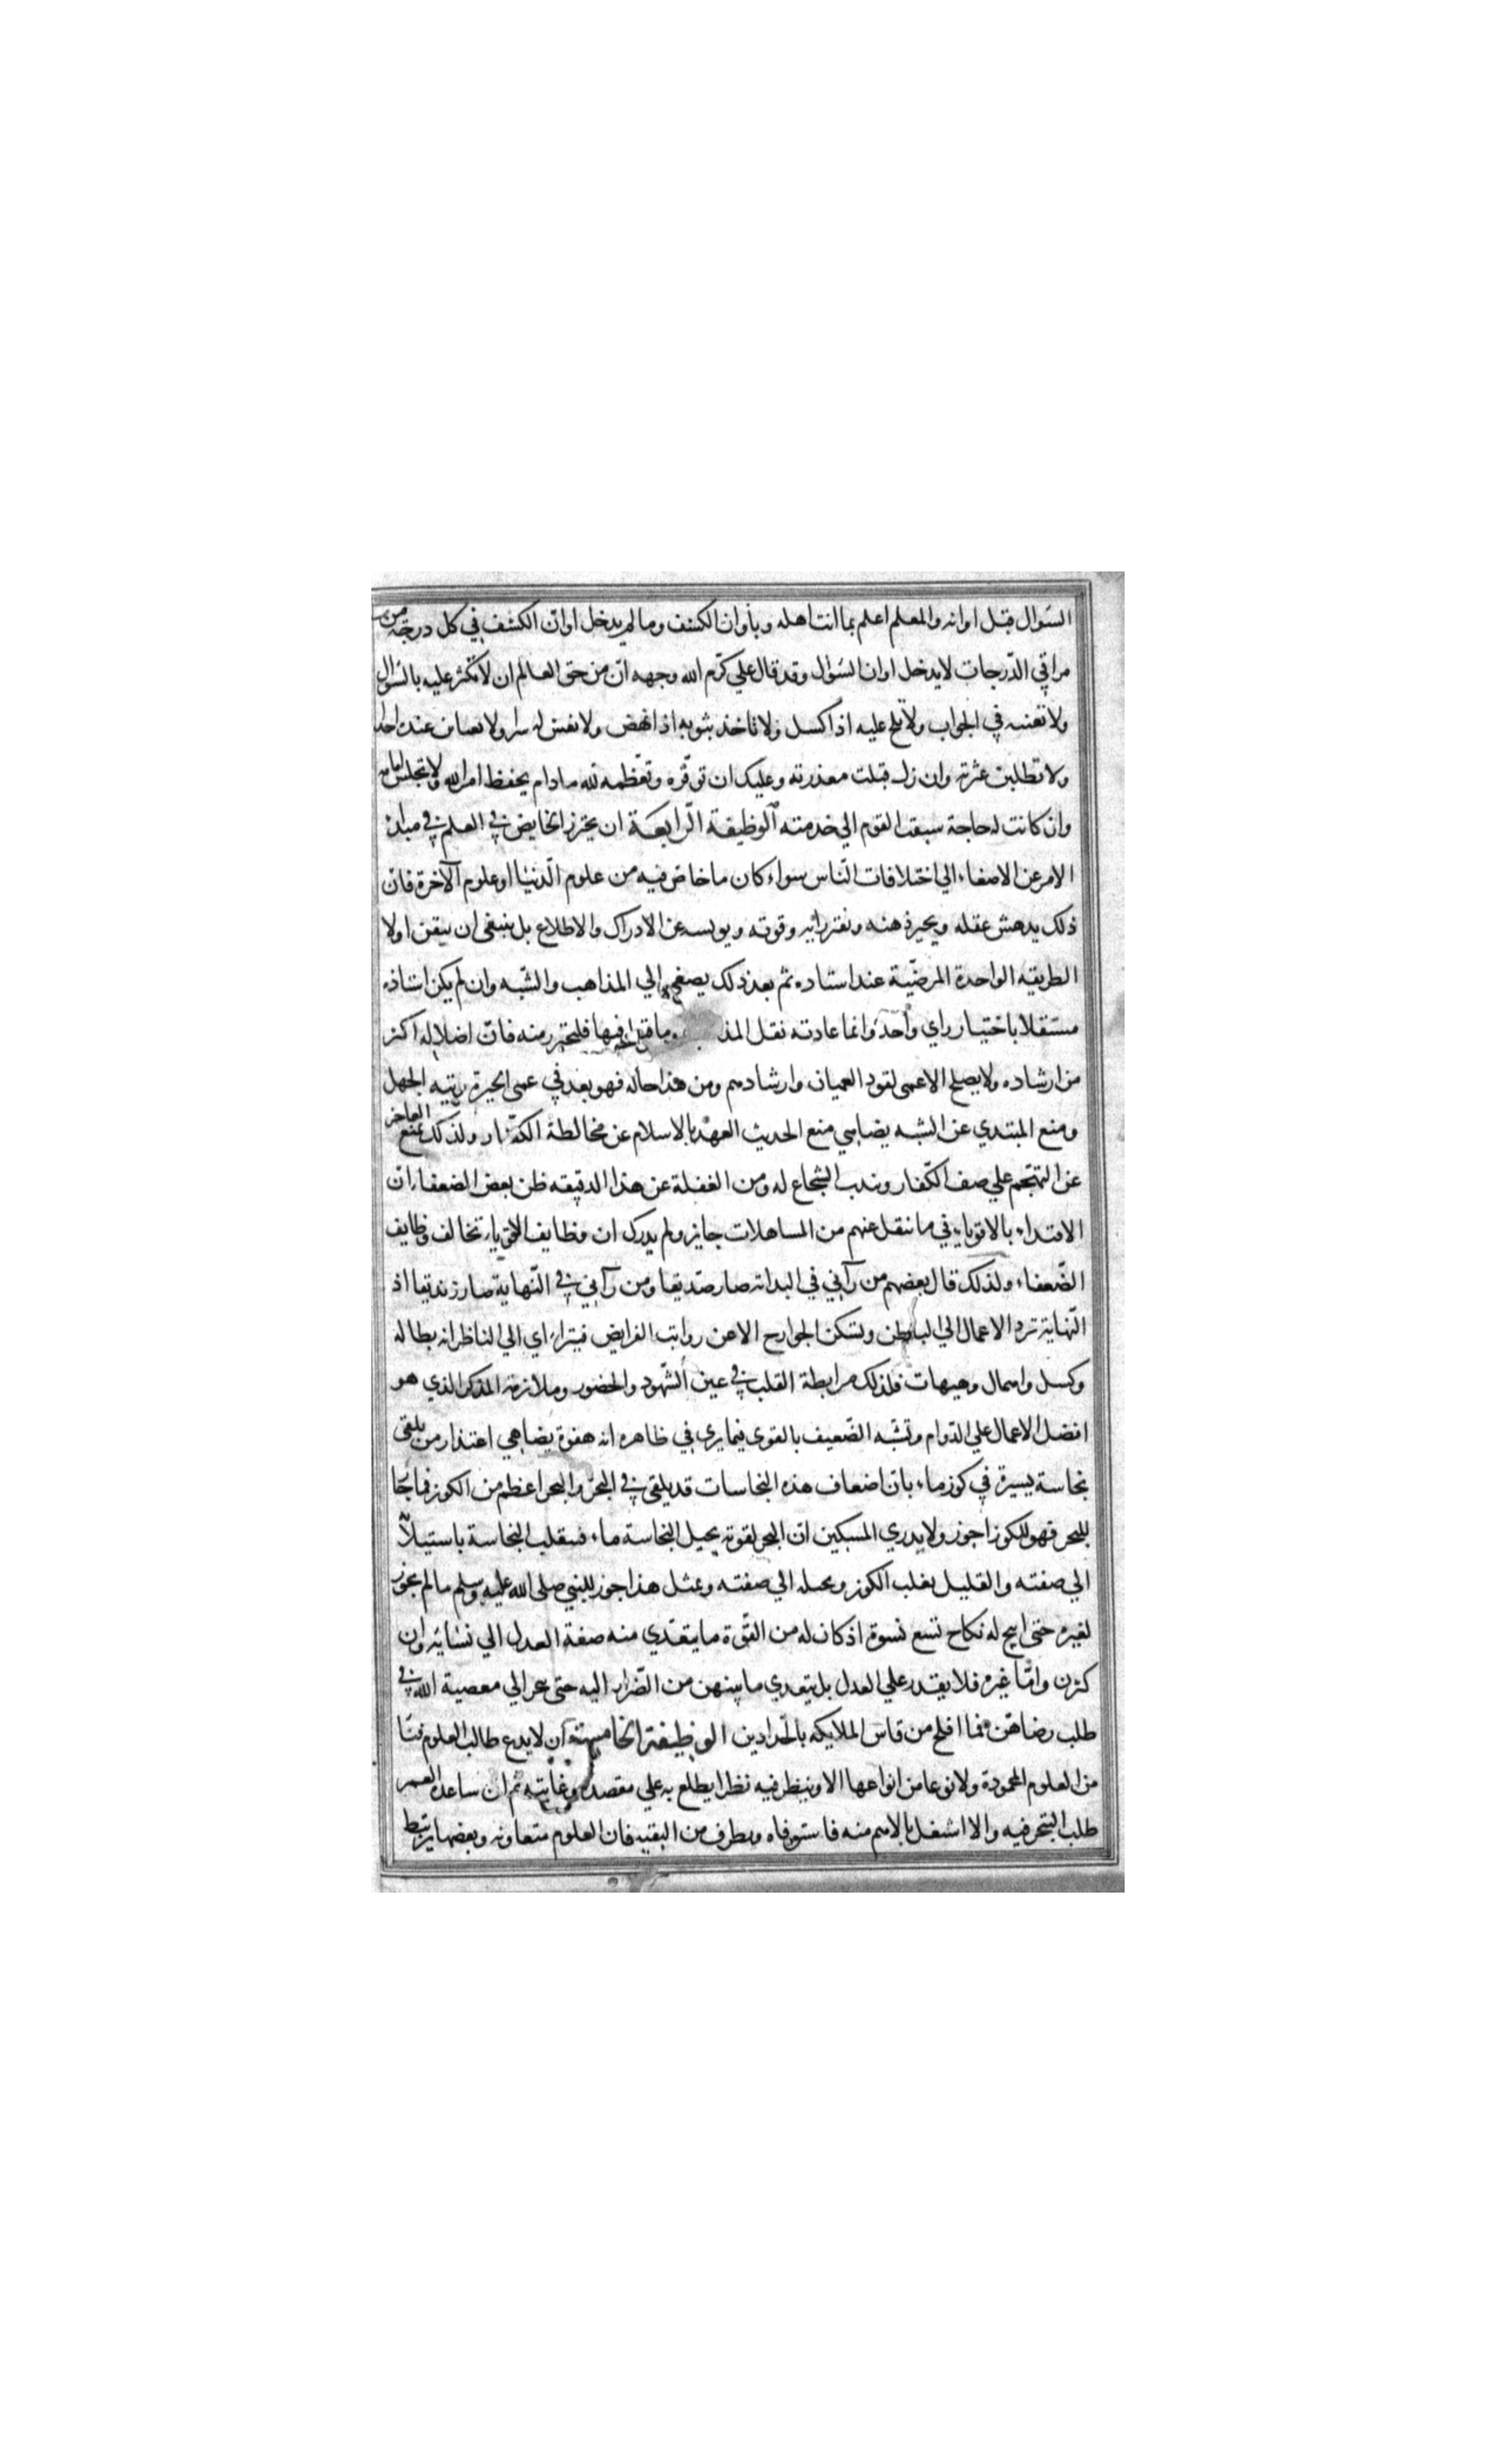 السّوال قبل اوانه والمعلم اعلم بما انت اهله وباوان الكشف وما لم يدخل اوان الكشف في كل درجة من
مراقي الدّرجات لا يدخل اوان السّوال وقد قال علي كرّم الله وجهه انّ من حق العالم ان لا تكثر عليه بالسّوال
ولا تعنته في الجواب ولا تلح عليه اذا كسل ولا تاخذ بثوبه اذا نهض ولا تفش له سرا ولا تغتابن عنده احدا
ولا تطلبن عثرته وان زل قبلت معذرته وعليك ان توقّره وتعظّمه لله ما دام يحفظ امر الله ولا تجلس امامه
وان كانت له حاجة سبقت القوم الي خدمته الوظيفة الرّابعة ان يحترز الخايض في العلم في مبادئ
الامر عن الاصغاء الي اختلافات النّاس سواء كان ما خاض فيه من علوم الدّنيا او علوم الآخرة فانّ
ذلك يدهش عقله ويحير ذهنه ويفتر رايه وقوته ويويسه عن الادراك والاطلاع بل ينبغي ان يتقن اولا
الطريقه الواحدة المرضّية عند استاده ثم بعد ذلك يصغي الي المذاهب والشّبه وان لم يكن استاذه
مستقلا باختيار راي واحد وانما عادته نقل المذ وما قيل فيها فليحترز منه فانّ اضلاله اكثر
من ارشاده ولا يصلح الاعمي لقود العميان وارشادهم ومن هذا حاله فهو بعد في عمي الحيرة وتيه الجهل
ومنع المبتدي عن الشبه يضاهي منع الحديث العهد بالاسلام عن مخالطة الكفّار ولذلك يمنع العاجز
عن التهجّم علي صف الكّفار وندب الشجاع له ومن الغفلة عن هذا الدقيقه ظن بعض الضعفاء انّ
الاقتداء بالاقوياء في ما نقل عنهم من المساهلات جايز ولم يدرك ان وظايف الاقوياء تخالف وظايف
الضّعفاء ولذلك قال بعضهم من رآني في البداته صار صّديقا ومن رآني في النّهاية صار زنديقا اذ
النّهاية ترد الاعمال الي الباطن وتسكن الجوارح الا عن رواتب الفرايض فيتراءاي الي الناظر انه بطاله
وكسل واهمال وهيهات فلذلك مرابطة القلب في عين الشّهود والحضور وملازمة الذكر الذي هو
افضل الاعمال علي الدّوام وتشبّه الضّعيف بالقوي فيما يري في ظاهره انه هفوة يضاهي اعتذار من يلقي
نجاسة يسيرة في كوز ماء بانّ اضعاف هذه النجاسات قد يلقي في البحر والبحر اعظم من الكوز فما جاز
للبحر فهو للكوز اجوز ولا يدري المسكين انّ البحر لقوته يحيل النجاسة ماء فتنقلب النجاسة باستيلآ
الي صفته والقليل يغلب الكوز ويحيله الي صفته وبمثل هذا جوز للنبي صلى الله عليه وسلم ما لم يجوز
لغيره حتي ابيح له نكاح تسع نسوة اذ كان له من القّوة ما يتعّدي منه صفة العدل الي نسّايه وان
كثرن وامّا غيره فلا يقدر علي العدل بل يتعدي ما بينهن من الضّرار اليه حتي يجر الي معصية الله في
طلب رضاهّن فما افلح من قاس الملايكه بالحدادين الوظيفة الخامسة ان لا يدع طالب العلوم فنّا
من العلوم المحمودة ولا نوعا من انواعها الا وينظر فيه نظرا يطلع به علي مقصده وغايته ثم ان ساعده العمر
طلب التبحر فيه والا اشتغل بالاهم منه فاستوفاه وتطرف من البقيه فان العلوم متعاونه وبعضها يرتبط